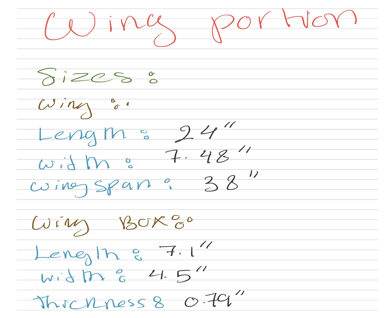 Wing portion
Sizes:
Wing:
Length: 24"
width: 7.48"
wingspan: 38"
Wing Box:
Length: 7.1"
width: 4.5"
thickness: 0.79"